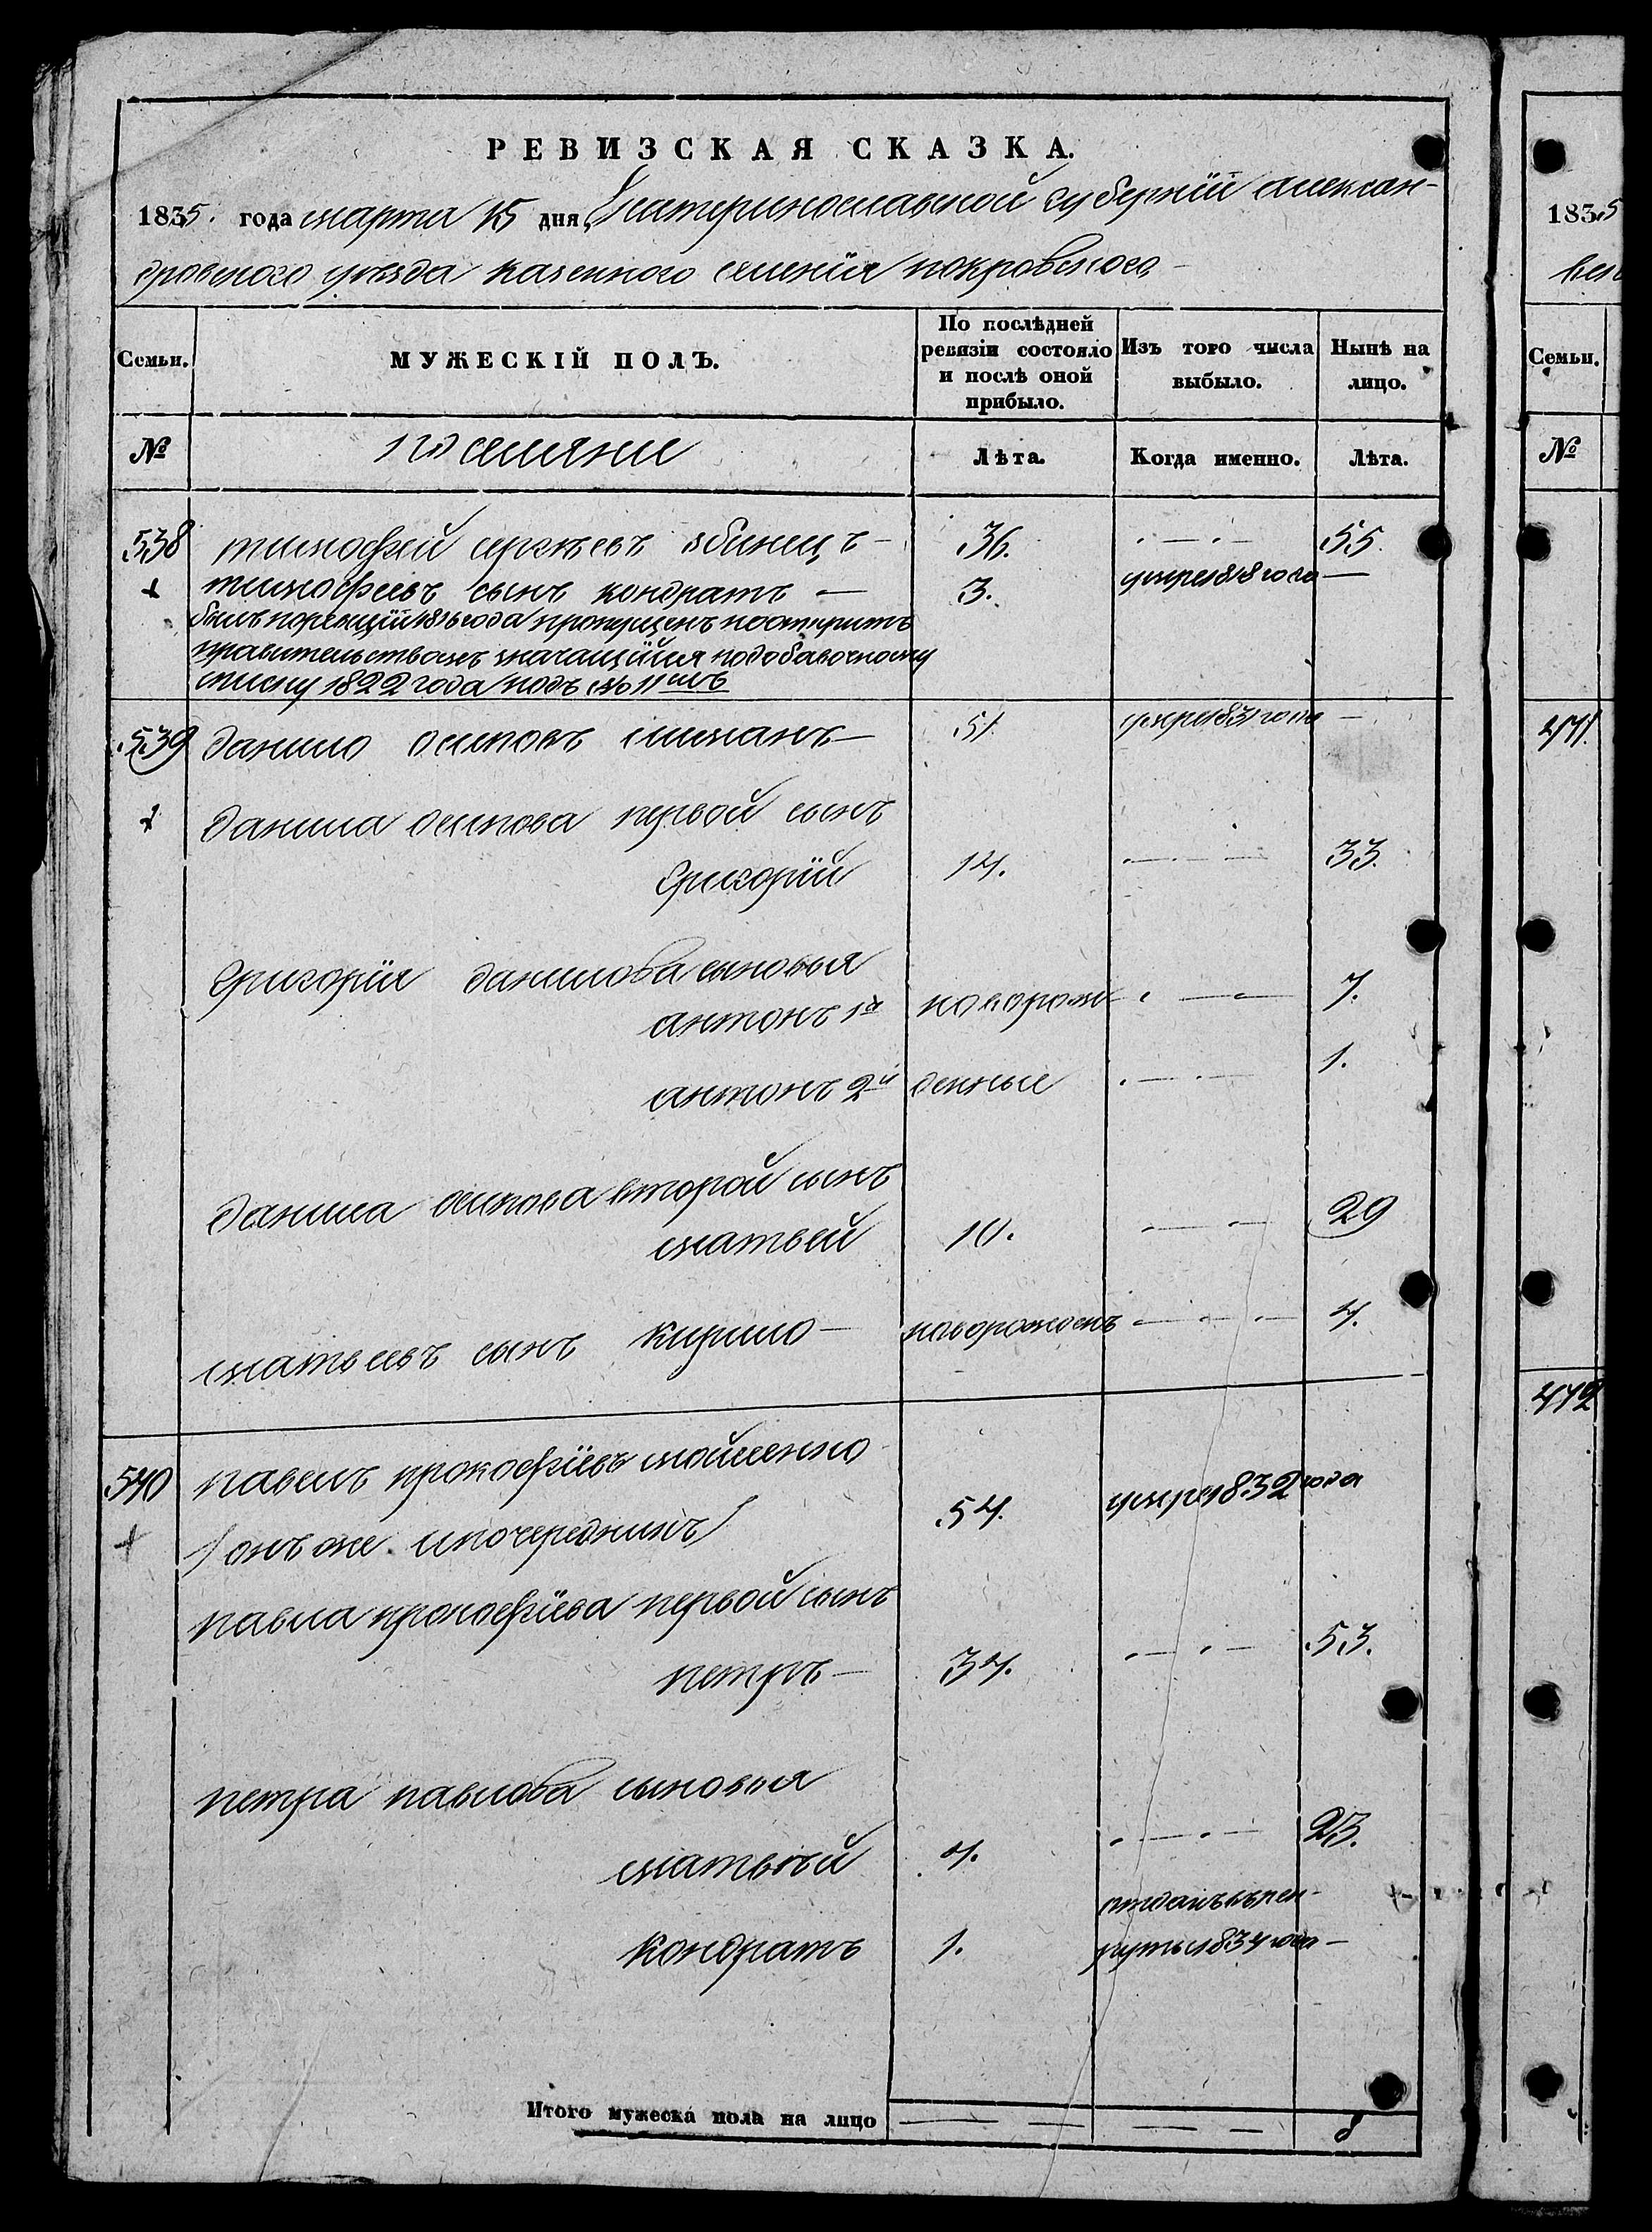 РЕВИЗСКАЯ СКАЗКА.
1835. года марта 15 дня, Екатеринославской губернїи алексан-
дровского уезда казенного селенїя покровского
Семьи. МУЖЕСКІЙ ПОЛЪ. По послѣдней ревизіи состояло и послѣ оной прибыло. Изъ того числа выбыло. Нынѣ на лицо.
№ поселяне Лѣта. Когда именно. Лѣта.
538 тимофей сергѣевъ 36. 55.
тимофеевъ сынъ кондратъ — 3. умре 1818 года —
былъ поревизїи 1816 года пропущенъ пооткрытъ
правительствомъ значащїйся подобавочному
списку 1822 года подъ № 11мъ
539 данило осиповъ 51. умре 1831 года —
данила осипова первой сынъ
Григорїй 14. 33.
Григорїя данилова сыновья
антонъ 1й новорож 7.
антонъ 2й денные 1.
данила осипова второй сынъ
матвей 10. 29
матвеевъ сынъ кирило — новорожденъ 4.
540 павелъ прокофїевъ мойсеенко 54. умре 1832 года
/ онъже /
павла прокофїева первой сынъ
петръ — 34. 53.
петра павлова сыновья
матвей 4. 23.
кондратъ 1. отданъ въ рек-
руты 1834 года —
Итого мужеска пола на лицо
183.5
Семьи.
№
471.
472